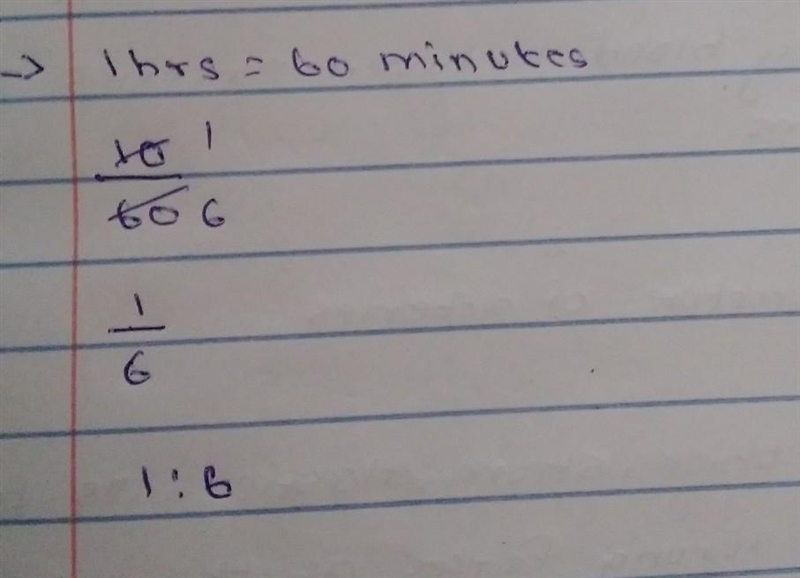 → 1hrs = 60 minutes
10 1
60 6
1
6
1:6